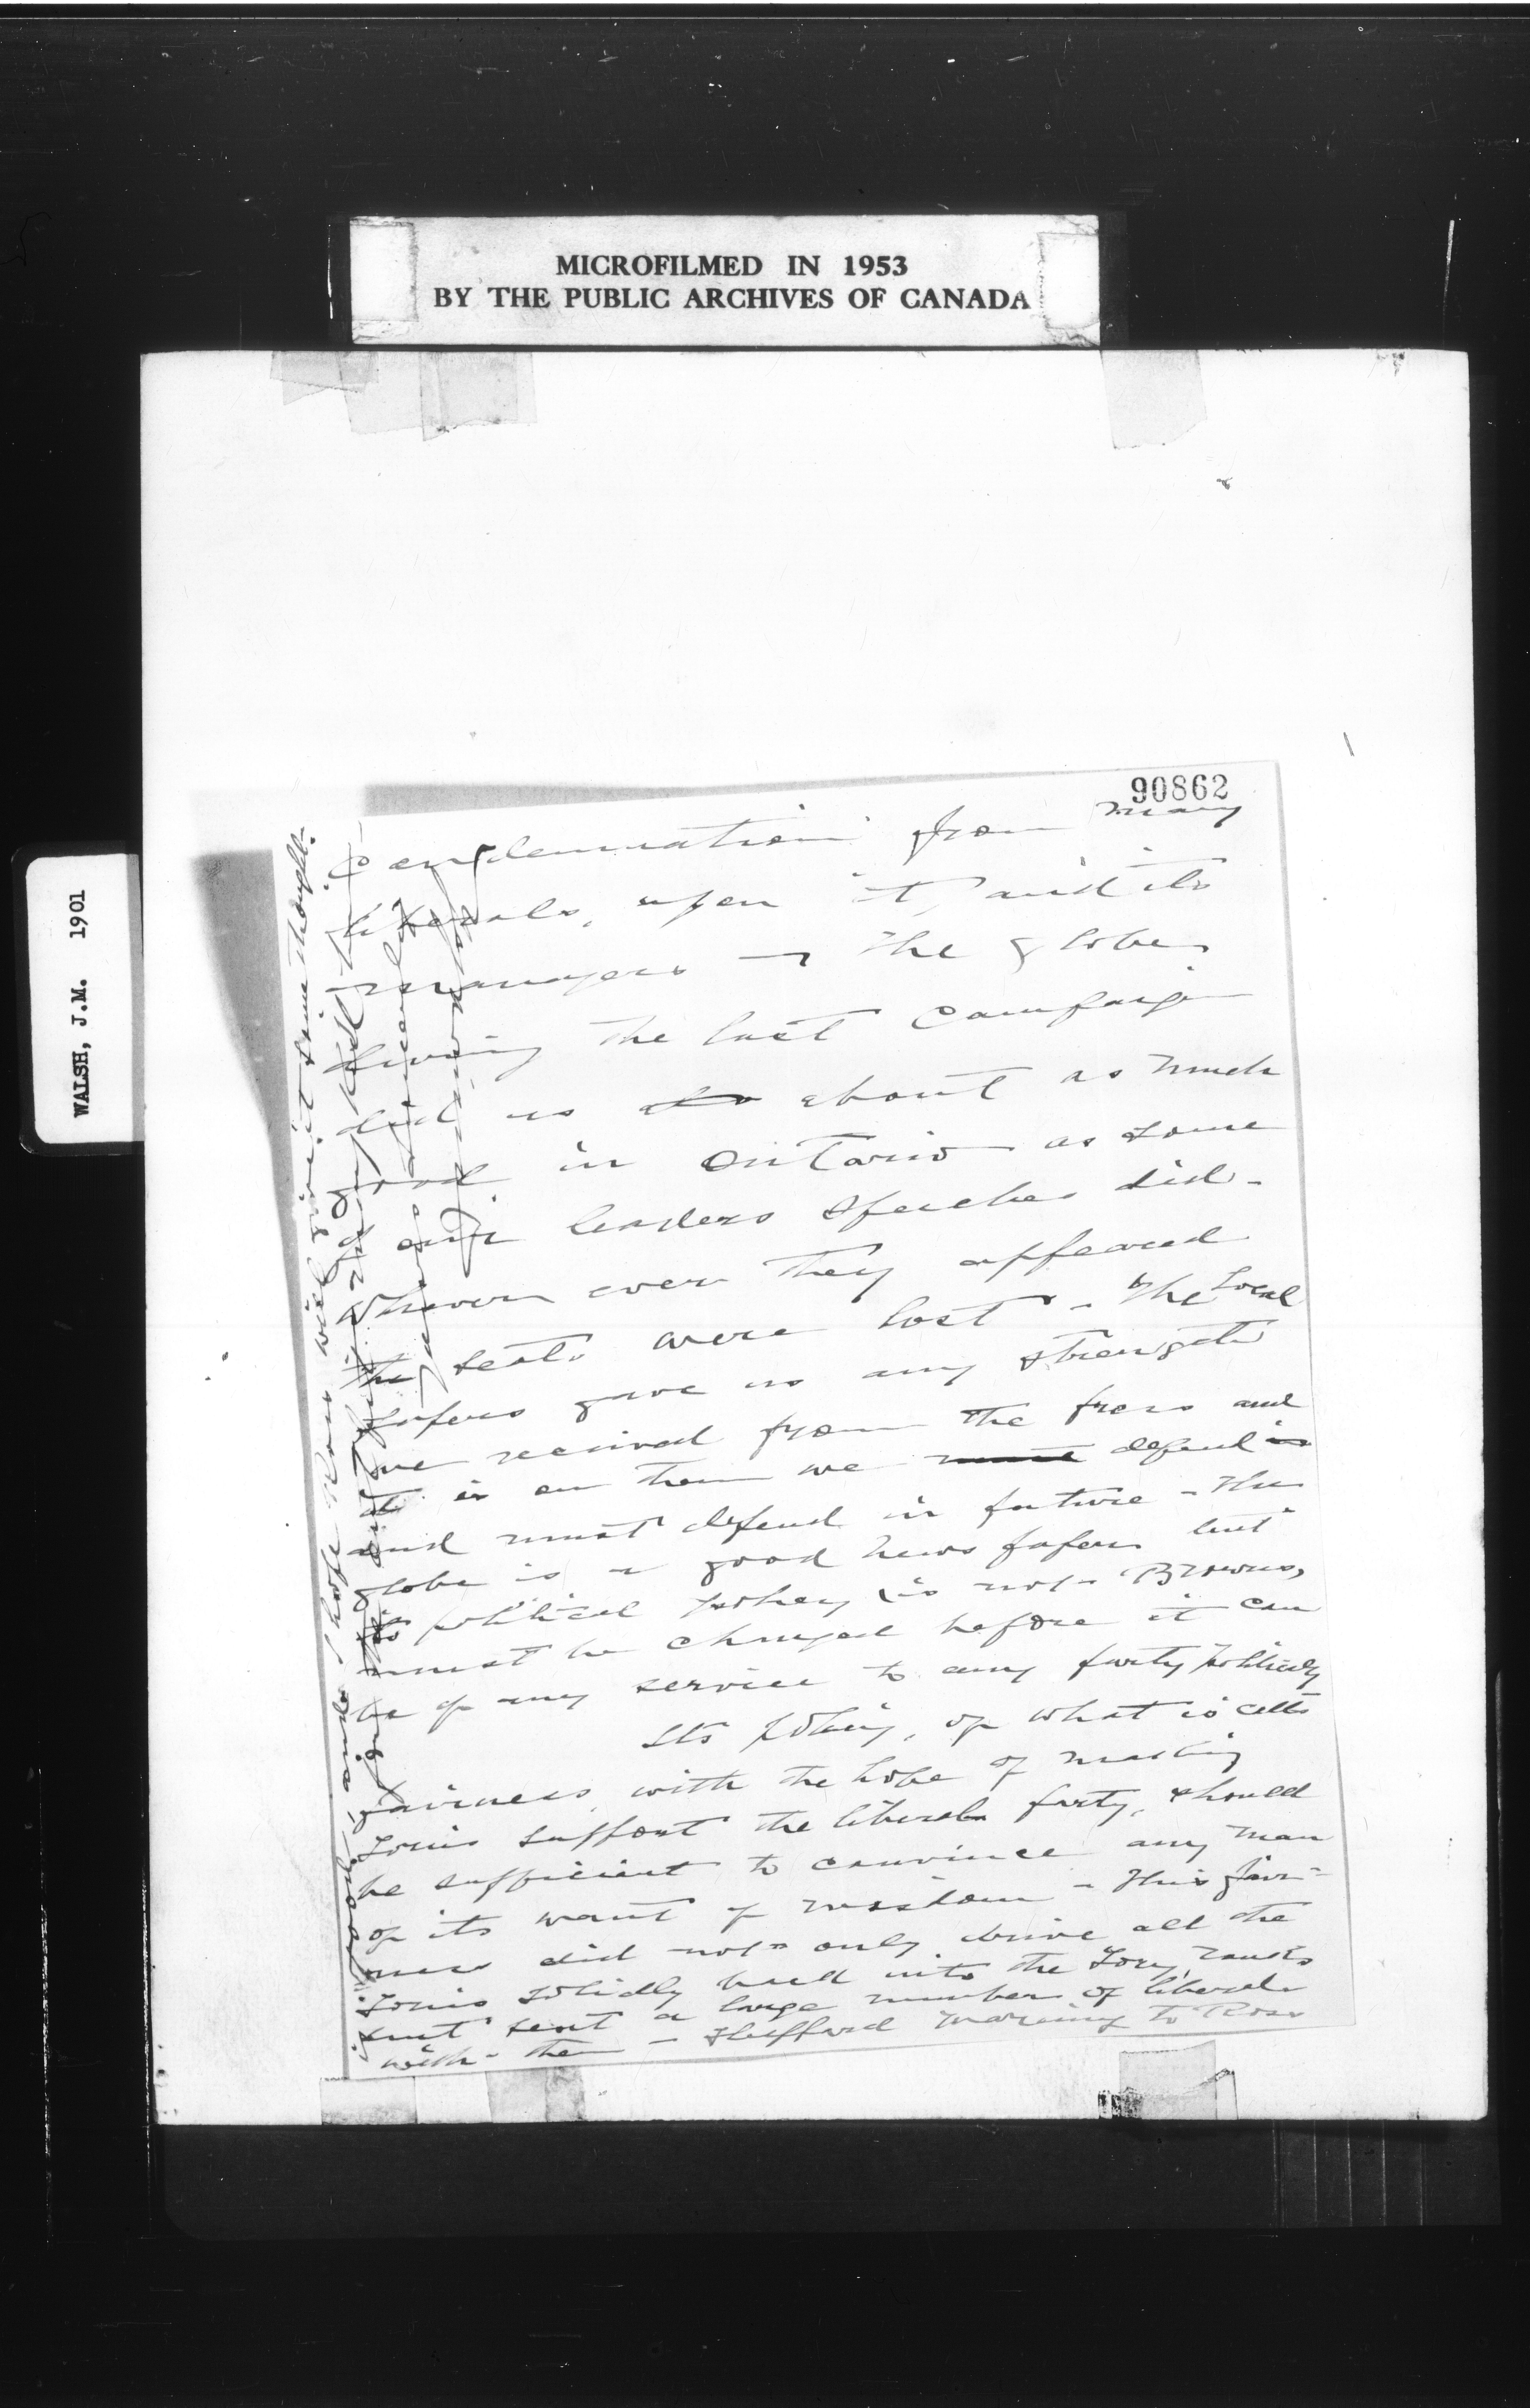 MICROFILMED IN 1953
BY THE PUBLIC ARCHIVES OF CANADA
WALSH, J.M. 1901
90862
Condemnation from many
liberals, upon it, and its
managers - The globe
during the last Campaign
did us about as much
good in Ontario as some
our leaders speeches did -
Where ever they appeared
the seats were lost - The Local
papers gave us any strength
we received from the press and
it is on them we must defend in
and must defend in future - The
globe is a good news paper but
its political policy is not - Browns,
must be changed before it can
be of any service to any party politically
Its policy, of what is calls
fairness, with the hope of making
Tories support the liberals party, should
be sufficient to convince any man
of its want of wisdom - This fair-
ness did not only drive all the
Tories solidly back into the Tory ranks
but sent a large number of liberals
with them - Shepherd moving to Ross
is good, and I hope Ross will give it some thought.